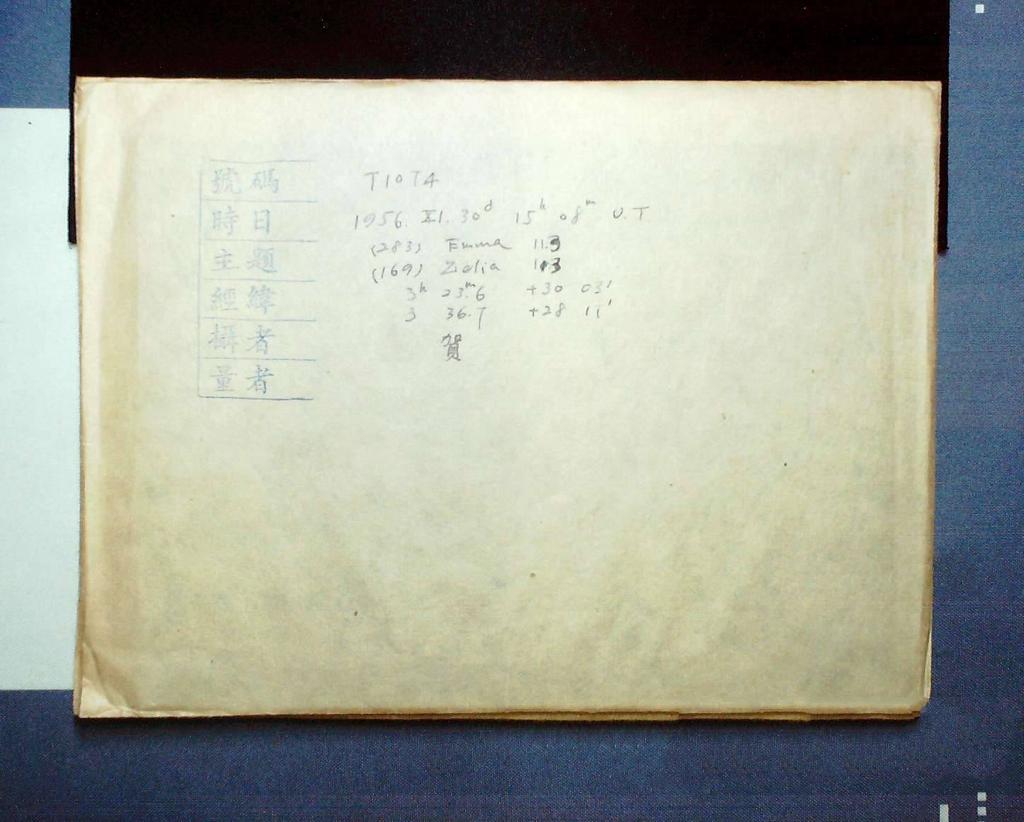 號碼 T1074
時日 1956. XI. 30d 15h 08m U.T
主題 (283) Emma 11.3
(169) Zelia 11.3
經緯 3h 23m.6 +30 03'
3 36.7 +28 11'
攝者 賀
量者